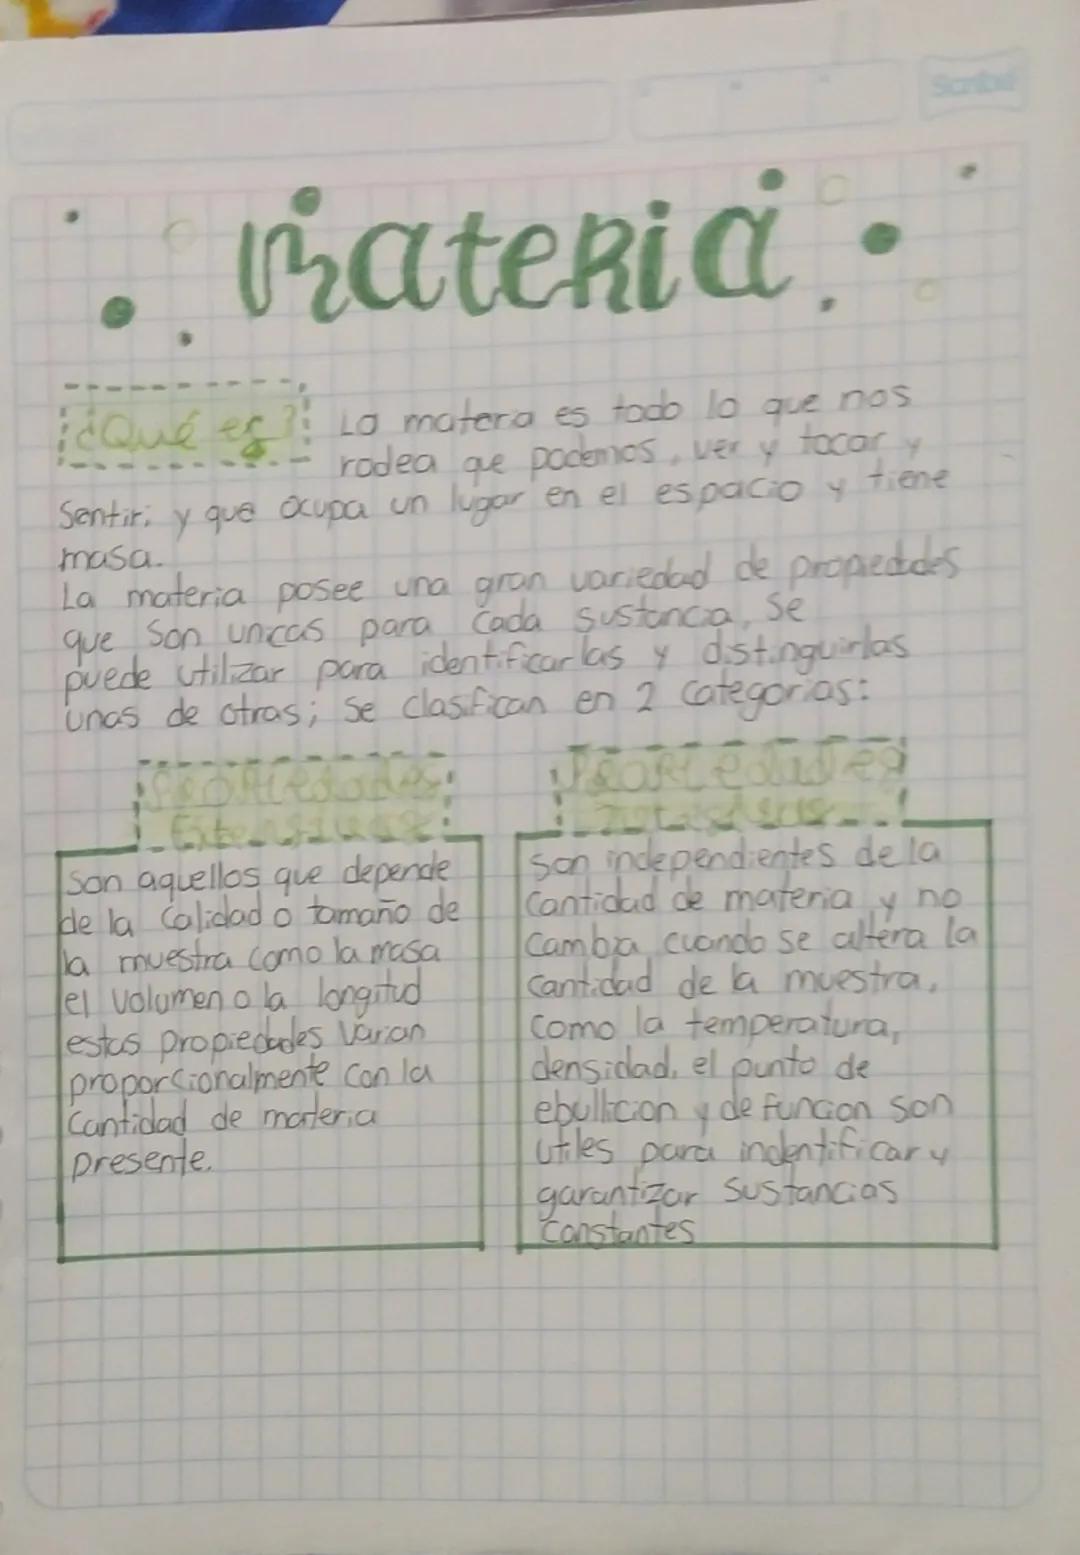 Scribe
Materia
¿Qué es?
La matera es todo lo que nos
rodea que podemos, ver y tocar y
Sentir; y que ocupa un lugar en el espacio y tiene
masa.
La materia posee una gran variedad de propiedades
que son unicas para cada sustancia, Se
puede utilizar para identificarlas y distinguirlas
unas de otras; Se clasifican en 2 categorias:
Propiedades
Extensivas
Son aquellos que depende
de la Calidad o tamaño de
la muestra como la masa
el volumen o la longitud
estas propiedades Varian
proporcionalmente con la
Cantidad de materia
presente.
Propiedades
Intensivas
son independientes de la
Cantidad de materia y no
Cambia cuando se altera la
Cantidad de la muestra,
Como la temperatura,
densidad, el punto de
ebullicion y de funcion son
utiles para indentificar y
garantizar Sustancias
Constantes